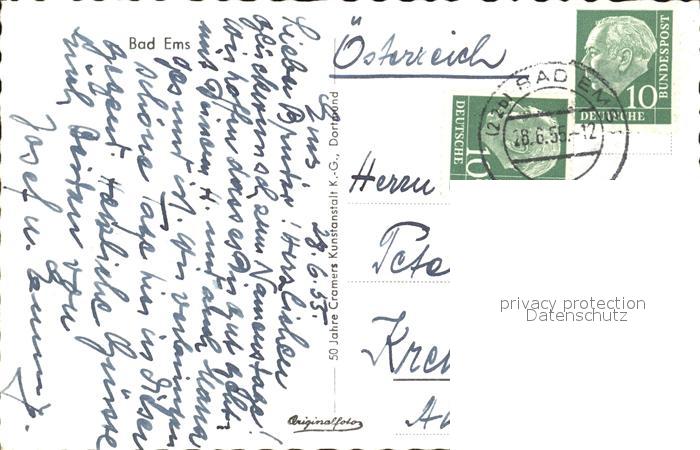 Bad Ems
Ems, 28.6.55.
Lieber Bruder! Herzlichen
Glückwunsch zum Namenstage!
Wir hoffen dass es Dir gut geht
mit Deinem H. und
gesund ist. Wir verbringen
schöne Tage hier in dieser
Gegend. Herzliche Grüsse
Euch Beiden von
Josef u.
50 Jahre Cramers Kunstanstalt K.-G., Dortmund
Originalfoto
Österreich
Herrn
Pete
Krem
DEUTSCHE
BUNDESPOST
10
DEUTSCHE
10
(22b) BAD EM
28.6.55.-12
privacy protection
Datenschutz